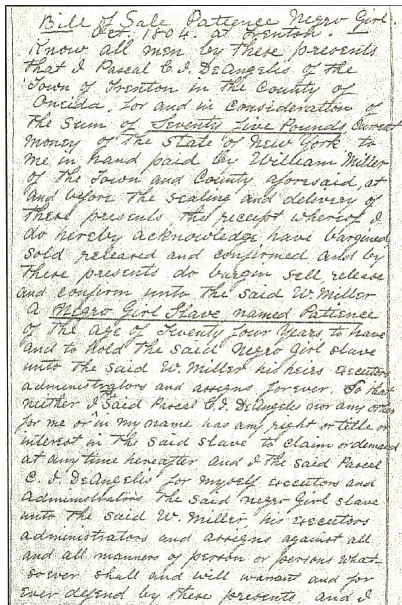 Bill of Sale Patience Negro Girl.
Oct. 1804. at Trenton.
Know all men by these presents
that I Pascal C. I. DeAngelis of the
Town of Trenton in the County of
Oneida, for and in consideration of
the sum of Seventy Five Pounds Current
money of the State of New York to
me in hand paid by William Miller
of the Town and County aforesaid, at
and before the sealing and delivery of
these presents, the receipt whereof I
do hereby acknowledge, have bargined
sold released and confirmed and by
these presents do bargin sell release
and confirm unto the said W. Miller
a Negro Girl Slave named Patience
of the age of Twenty four Years, to have
and to hold the said negro Girl slave
unto the said W. Miller his heirs executors
administrators and assigns forever. So that
neither I the said Pascal C. I. DeAngelis nor any other
for me or in my name has any right or title or
interest in the said slave to claim or demand
at any time hereafter and I the said Pascal
C. I. DeAngelis for myself executors and
administrators the said negro Girl slave
unto the said W. Miller, his executors
administrators and assigns against all
and all manners of person or persons what-
soever shall and will warant and for
ever defend by these presents, and I